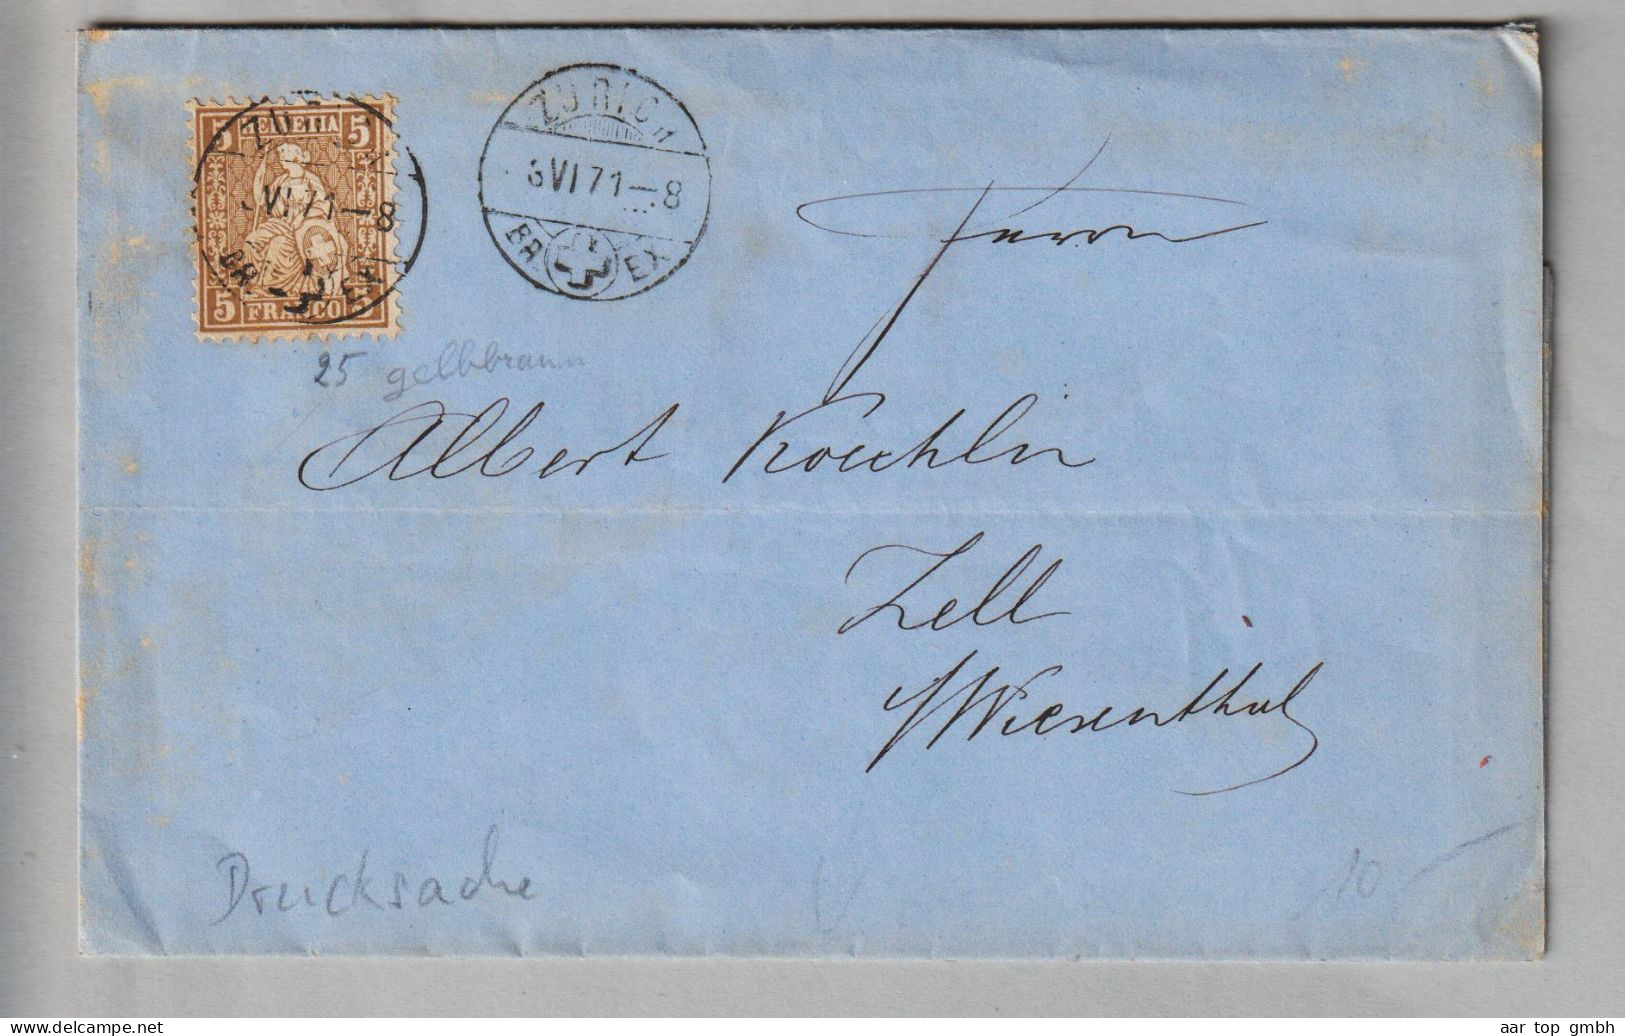 5 HELVETIA 5
5 FRANCO 5
ZÜRICH
VI 71-8
BR. EX
ZÜRICH
3 VI 71-8
BR. EX
Herrn
25 gelbbraun
Albert Koechlin
Zell
/Wiesenthal
Drucksache
10
aar top gmbh
Delcampe.net